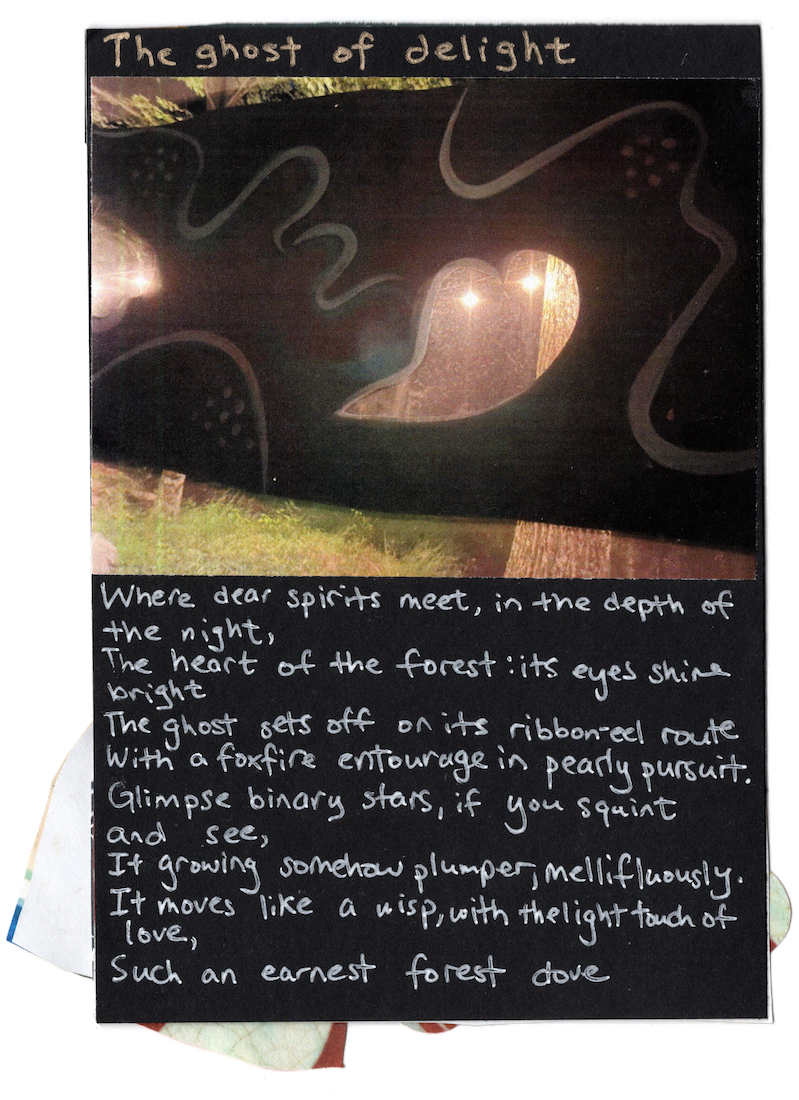 The ghost of delight
Where dear spirits meet, in the depth of
the night,
The heart of the forest: its eyes shine
bright
The ghost sets off on its ribbon-eel route
With a foxfire entourage in pearly pursuit.
Glimpse binary stars, if you squint
and see,
It growing somehow plumper, mellifluously.
It moves like a wisp, with the light touch of
love,
Such an earnest forest dove